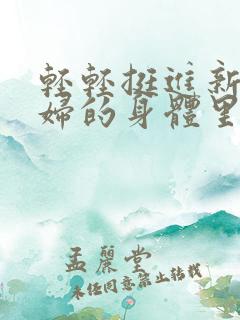 輕輕挺進新
婦的身體里
孟麗堂
未经同意禁止转载